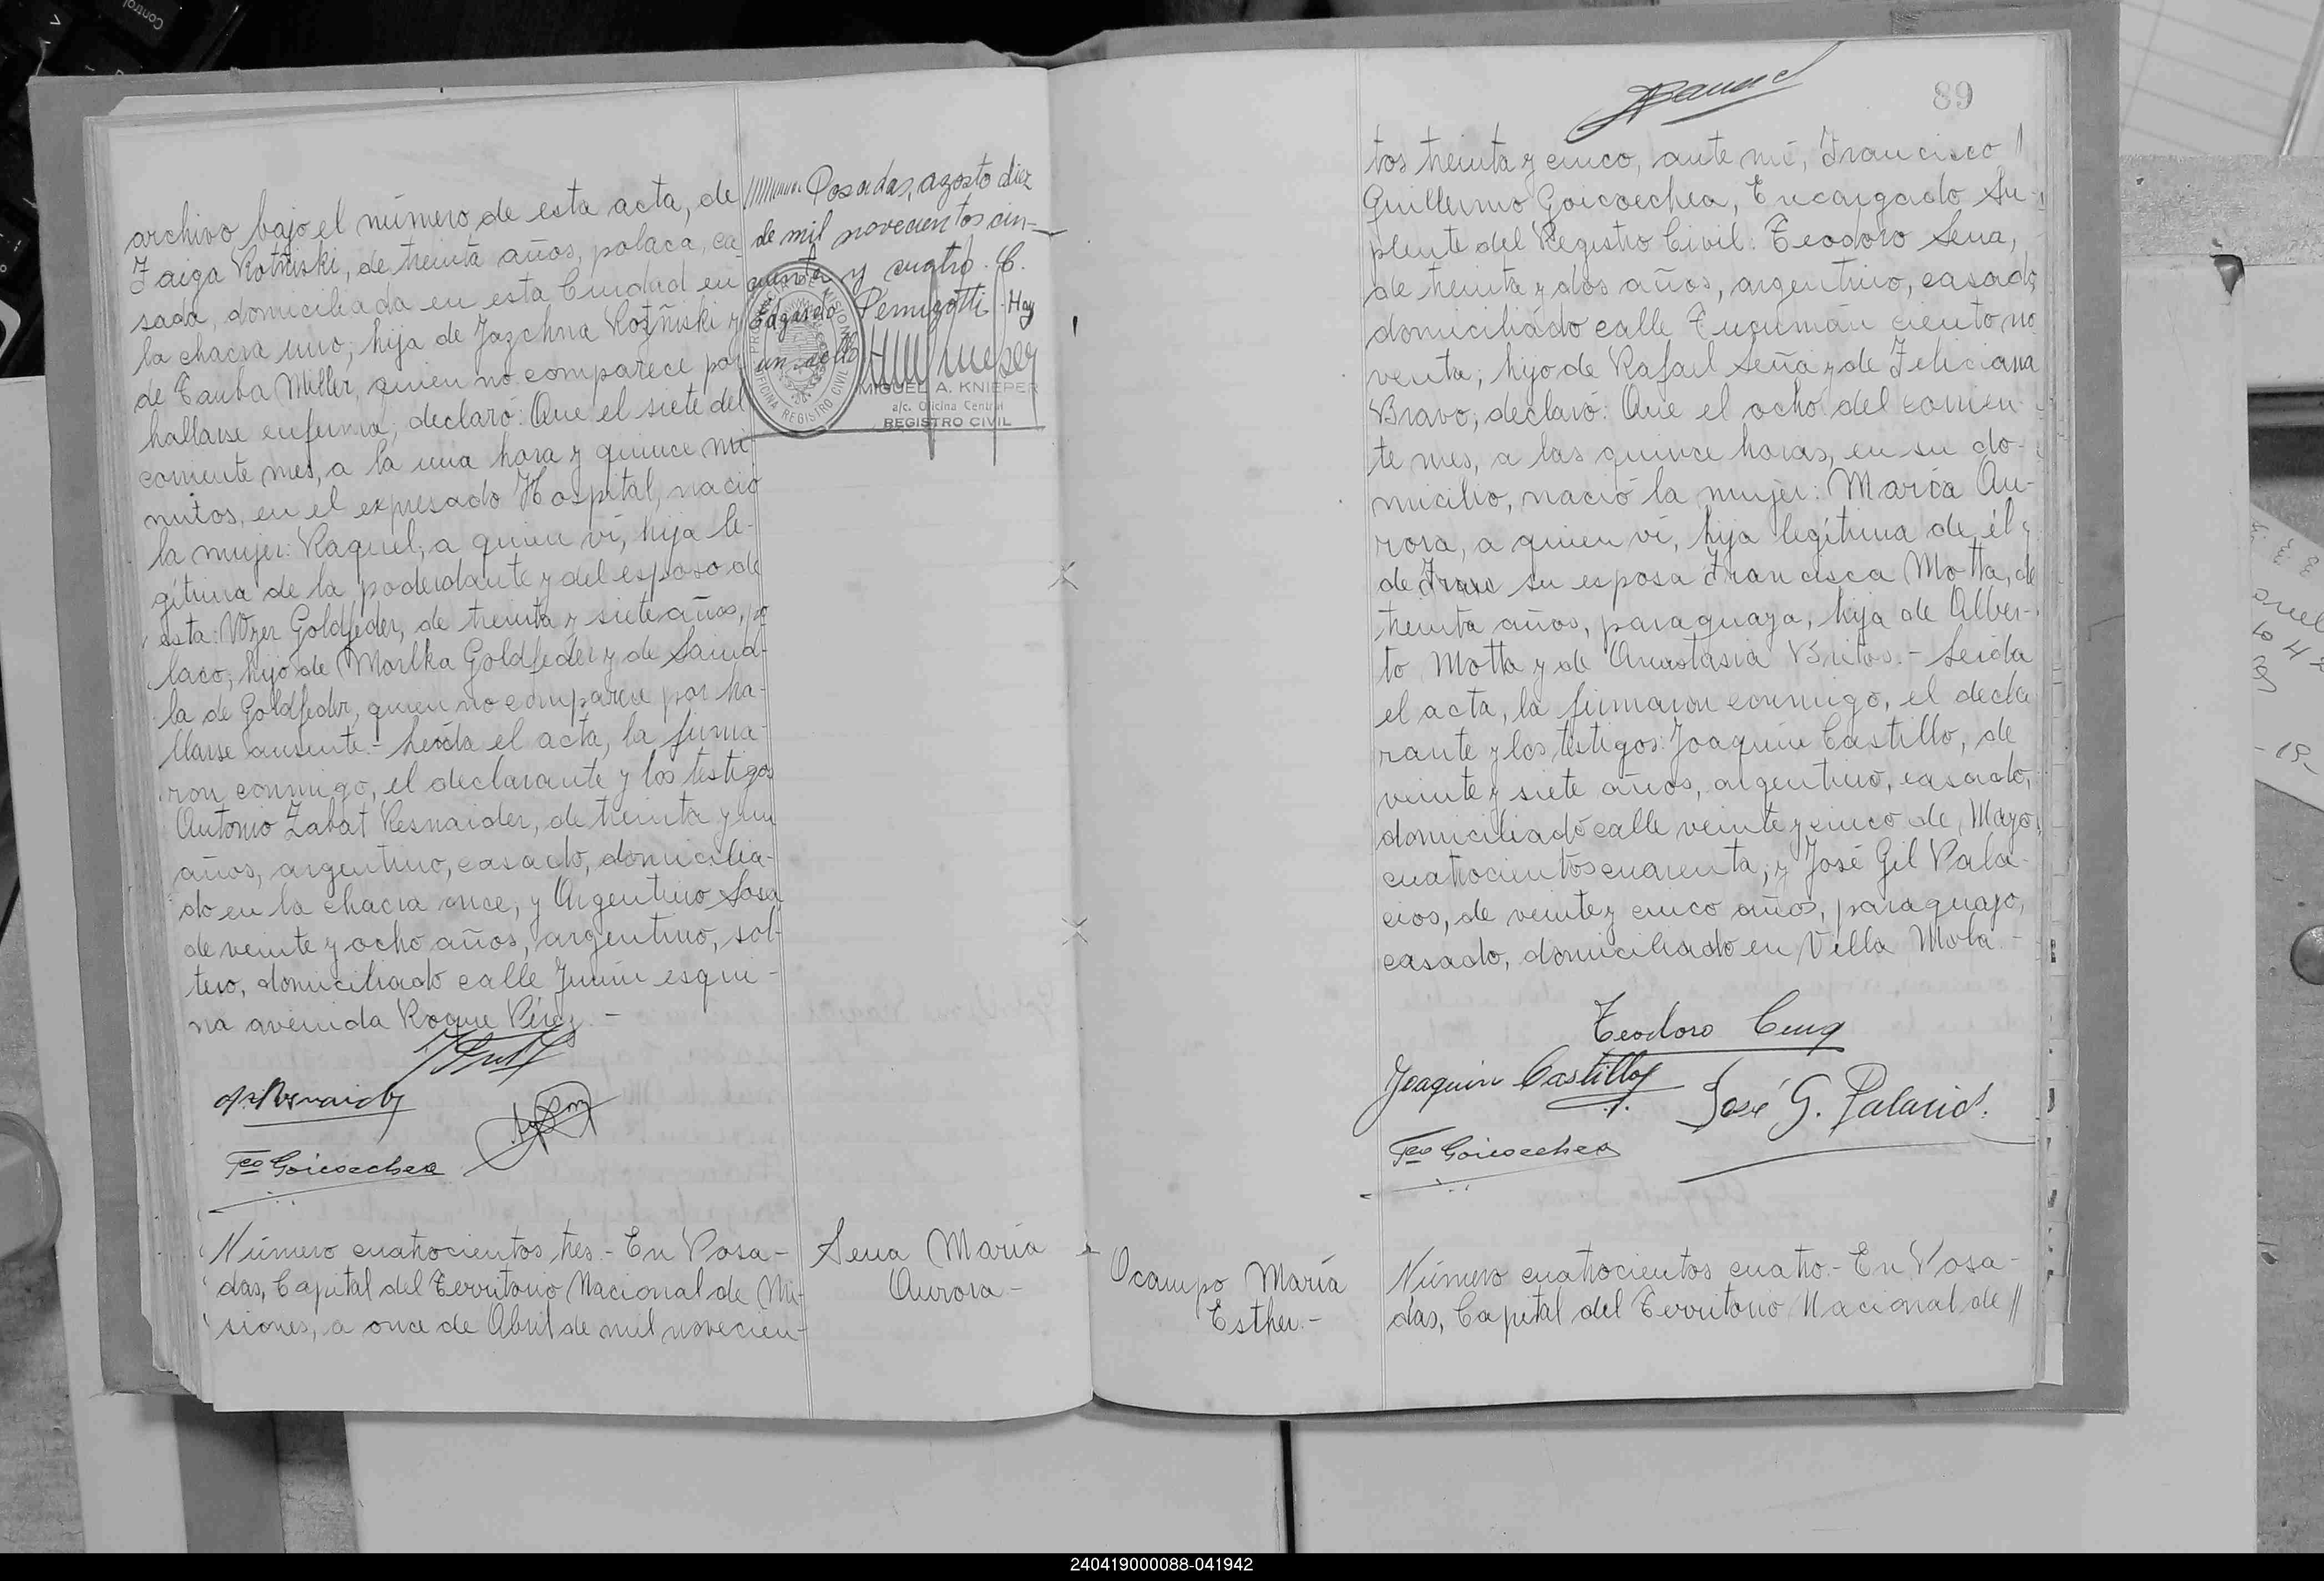 archivo bajo el número de esta acta, de
Faiga Rotñiski, de treinta años, polaca, ca-
sada, domiciliada en esta Ciudad en
la chacra uno, hija de Jazchna Rotñiski y
de Tauba Miller, quien no comparece por
hallarse enferma, declaró: Que el siete del
corriente mes, a la una hora y quince mi
nutos, en el expresado Hospital, nació
la mujer: Raquel, a quien ví, hija le-
gítima de la poderdante y del esposo de
esta: Wzer Goldfeder, de treinta y siete años, po
laco, hijo de Morlka Goldfeder y de Saind-
la de Goldfeder, quien no comparece por ha-
llarse ausente.- Leída el acta, la firma-
ron conmigo, el declarante y los testigos
Antonio Zabat Resnaider, de treinta y un
años, argentino, casado, domicilia-
do en la chacra once, y Argentino Sosa
de veinte y ocho años, argentino, sol-
tero, domiciliado calle Junín esqui-
na avenida Roque Pérez.-
Fco Goicoechea
Número cuatrocientos tres.- En Posa-
das, Capital del Territorio Nacional de Mi-
siones, a once de Abril de mil novecien-
Posadas, agosto diez
de mil novecientos cin-
cuenta y cuatro. C.
Edgardo Perugotti. Hay
un sello
PROVINCIA DE MISIONES
OFICINA REGISTRO CIVIL
MIGUEL A. KNIEPER
a/c. Oficina Central
REGISTRO CIVIL
Sena María
Aurora-
89
tos treinta y cinco, ante mí, Francisco
Guillermo Goicoechea, Encargado Su-
plente del Registro Civil: Teodoro Sena,
de treinta y dos años, argentino, casado,
domiciliado calle Tucumán ciento no
venta; hijo de Rafael Seña y de Feliciana
Bravo; declaró: Que el ocho del corrien-
te mes, a las quince horas, en su do-
micilio, nació la mujer: María Au-
rora, a quien ví, hija legítima de él y
de Franc su esposa Francisca Motta, de
treinta años, paraguaya, hija de Alber-
to Motta y de Anastasia Britos.- Leida
el acta, la firmaron conmigo, el decla
rante y los testigos: Joaquín Castillo, de
veinte y siete años, argentino, casado,
domiciliado calle veinte y cinco de Mayo
cuatrocientos cuarenta; y José Gil Pala-
cios, de veinte y cinco años, paraguayo,
casado, domiciliado en Villa Mola.-
Teodoro Cena
Joaquin Castillo
José G. Palacios.
Fco Goicoechea
Ocampo María
Esther.-
Número cuatrocientos cuatro.- En Posa-
das, Capital del Territorio Nacional de //
240419000088-041942